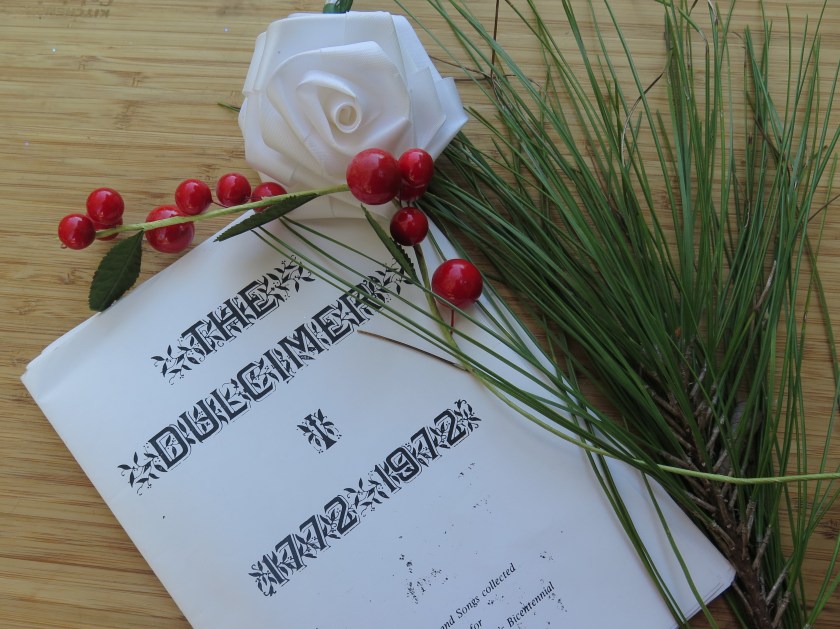 THE
DULCIMER
I
1772-1972
and Songs collected
for
Bicentennial